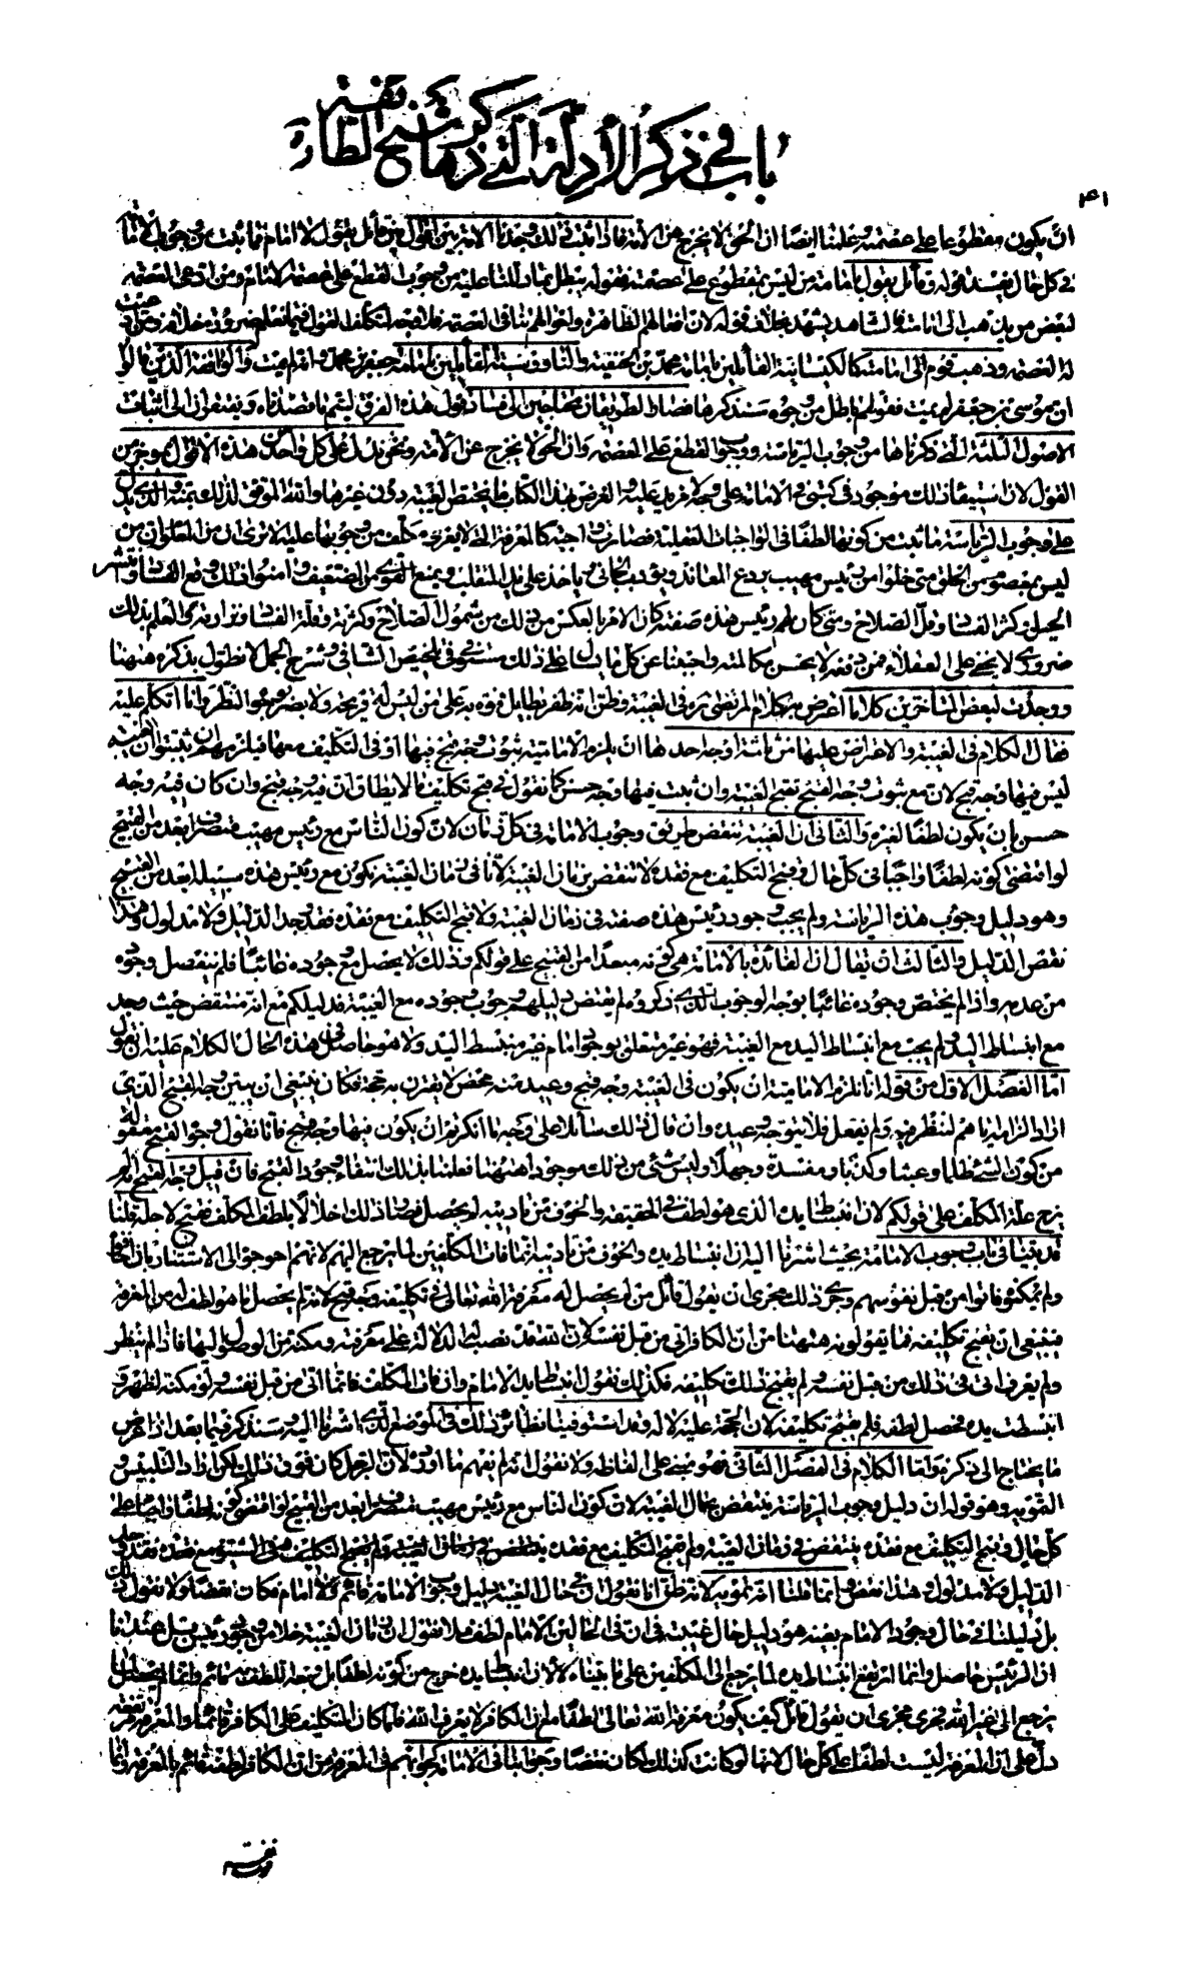 باب في ذكر الأدلة التي ذكرها شيخ الطائفة
۴۱
ان يكون مقطوعا على عصمته وعلمنا ايضا ان الحق لا يخرج عن الامة فاذا ثبت ذلك وجدنا الامة بين اقوال بين قائل يقول لا امام فما ثبت من وجوب الامامة
في كل حال يفسد قوله وقائل يقول بامامة من ليس بمقطوع على عصمته فقوله يبطل بما دللنا عليه من وجوب القطع على عصمة الامام ومن ادعى العصمة
لبعض من يذهب الى امامته فالشاهد يشهد بخلاف قوله لان افعالهم الظاهرة واحوالهم تنافي العصمة فلا وجه لتكلف القول فيما نعلم ضرورة خلافه ومن ادعيت
له العصمة وذهب قوم الى امامته كالكيسانية القائلين بامامة محمد بن الحنفية والناووسية القائلين بامامة جعفر بن محمد وانه لم يمت والواقفة الذين قالوا
ان موسى بن جعفر لم يمت فقولهم باطل من وجوه سنذكرها فصار الطريقان محتاجين الى فساد قول هذه الفرق ليتم ما قصدناه ويفتقران الى اثبات
الاصول الثلثة التي ذكرناها من وجوب الرياسة ووجوب القطع على العصمة وان الحق لا يخرج عن الامة ونحن ندل على كل واحد من هذه الاقوال بموجز من
القول لان استيفاء ذلك موجود في كتبي في الامامة على وجه لا مزيد عليه والغرض بهذا الكتاب ما يختص الغيبة دون غيرها والله الموفق لذلك بمنه والذي يدل
على وجوب الرياسة ما ثبت من كونها لطفا في الواجبات العقلية فصارت واجبة كالمعرفة التي لا يعرى مكلف من وجوبها عليه الا ترى ان من المعلوم ان من
ليس بمعصوم من الخلق متى خلوا من رئيس مهيب يردع المعاند ويؤدب الجاني ياخذ على يد المتغلب ويمنع القوي من الضعيف وامنوا ذلك وقع الفساد وانتشر
الحيل وكثر الفساد وقل الصلاح ومتى كان لهم رئيس هذه صفته كان الامر بالعكس من ذلك من شمول الصلاح وكثرته وقلة الفساد ونزارته والعلم بذلك
ضروري لا يخفى على العقلاء فمن دفعه لا يحسن مكالمته واجبنا عن كل ما يسال على ذلك مستوفى في تلخيص الشافي وشرح الجمل لا نطول بذكره ههنا
ووجدت لبعض المتاخرين كلاما اعترض به كلام المرتضى ره في الغيبة وظن انه ظفر بطايل فموه به على من ليس له قريحة ولا بصر بوجوه النظر وانا اتكلم عليه
فقال الكلام في الغيبة والاعتراض عليها من ثلثة اوجه احدها ان يلزم الامامية ثبوت وجه قبح فيها او في التكليف معها فيلزمهم ان يثبتوا ان الغيبة
ليس فيها وجه قبح لان مع ثبوت وجه القبح تقبح الغيبة وان ثبت فيها وجه حسن كما نقول في قبح تكليف ما لا يطاق ان فيه وجه قبح وان كان فيه وجه
حسن بان يكون لطفا لغيره والثاني ان الغيبة تنقض طريق وجوب الامامة في كل زمان لان كون الناس مع رئيس مهيب متصرف ابعد من القبيح
لو اقتضى كونه لطفا واجبا في كل حال وقبح التكليف مع فقده لانتقض بزمان الغيبة لانا في زمان الغيبة نكون مع رئيس هذه سبيله ابعد من القبيح
وهو دليل وجوب هذه الرياسة ولم يجب وجود رئيس هذه صفته في زمان الغيبة ولا قبح التكليف مع فقده فقد وجد الدليل ولا مدلول وهذا
نقض الدليل والثالث ان يقال ان الفائدة بالامامة هي كونه مبعدا من القبيح على قولكم وذلك لا يحصل مع وجوده غائبا فلم ينفصل وجوده
من عدمه واذا لم يختص وجوده غائبا بوجه الوجوب الذي ذكروه لم يقتض دليلهم وجوب وجوده مع الغيبة فدليلكم مع انه منتقض حيث وجد
مع انبساط اليد ولم يجب مع انبساط اليد مع الغيبة فهو غير متعلق بوجود امام غير منبسط اليد ولا هو حاصل في هذه الحال الكلام عليه ان نقول
اما الفصل الاول من قوله انا نلزم الامامية ان يكون في الغيبة وجه قبح وعيد منه محض لا يقترن به حجة فكان ينبغي ان يبين وجه القبح الذي
اراد الزامه اياهم لننظر فيه ولم يفعل فلا يتوجه وعيده وان قال ذلك سائلا على وجه ما انكرتم ان يكون فيها وجه قبح فانا نقول وجوه القبح معقولة
من كون الشيء ظلما وعبثا وكذبا ومفسدة وجهلا وليس شيء من ذلك موجودا ههنا فعلمنا بذلك انتفاء وجوه القبح فان قيل وجه القبح انه لم
يزح علة المكلف على قولكم لان انبساط يده الذي هو لطف في الحقيقة والخوف من تاديبه لم يحصل فصار ذلك اخلالا بلطف المكلف فقبح لاجله قلنا
قد بينا في باب وجوب الامامة بحيث اشرنا اليه ان انبساط يده والخوف من تاديبه انما فات المكلفين لما يرجع اليهم لانهم احوجوه الى الاستتار بان اخافوه
ولم يمكنوه فاتوا من قبل نفوسهم وجرى ذلك مجرى ان يقول قائل من لم يحصل له معرفة الله تعالى في تكليفه وجه قبح لانه لم يحصل ما هو لطف له من المعرفة
فينبغي ان يقبح تكليفه فما يقولونه ههنا من ان الكافر اتى من قبل نفسه لان الله قد نصب له الدلالة على معرفته ومكنه من الوصول اليها فاذا لم ينظر
ولم يعرف اتى في ذلك من قبل نفسه ولم يقبح ذلك تكليفه فكذلك نقول انبساط يد الامام وان فات المكلف فانما اتى من قبل نفسه ولو مكنه لظهر و
انبسطت يده فحصل لطفه فلم يقبح تكليفه لان الحجة عليه لا له وقد استوفينا نظائر ذلك في الموضع الذي اشرنا اليه وسنذكر فيما بعد اذا عرض
ما يحتاج الى ذكره واما الكلام في الفصل الثاني فهو مبني على الفاظه ولا نقول انه لم يفهم ما اورده لان الرجل كان فوق ذلك لكن اراد التلبيس و
التمويه وهو قوله ان دليل وجوب الرياسة ينتقض بحال الغيبة لان كون الناس مع رئيس مهيب متصرف ابعد من القبيح لو اقتضى كونه لطفا واجبا على
كل حال وقبح التكليف مع فقده ينتقض في زمان الغيبة ولم يقبح التكليف مع فقده فقد وجد
الدليل ولا مدلول وهذا نقض وانما قلنا انه تمويه لانه ظن انا نقول ان في حال الغيبة دليل وجوب الامامة قائم ولا امام فكان نقضا ولا نقول ذلك
بل دليلنا في حال وجود الامام بعينه هو دليل حال غيبته في ان في الحالين الامام لطف فلا نقول ان زمان الغيبة خلا من وجود رئيس بل عندنا
ان الرئيس حاصل وانما ارتفع انبساط يده لما يرجع الى المكلفين على ما بيناه لا لان انبساط يده خرج من كونه لطفا بل وجه اللطف به قائم وانما لم يحصل لما
يرجع الى غير الله فجرى مجرى ان يقول قائل كيف يكون معرفة الله تعالى لطفا مع ان الكافر لا يعرف الله فلما كان التكليف على الكافر قائما والمعرفة مرتفعة
دل على ان المعرفة ليست لطفا على كل حال لانها لو كانت كذلك لكان نقضا وجوابنا في الامامة كجوابهم في المعرفة من ان الكافر لطفه قائم بالمعرفة وانما